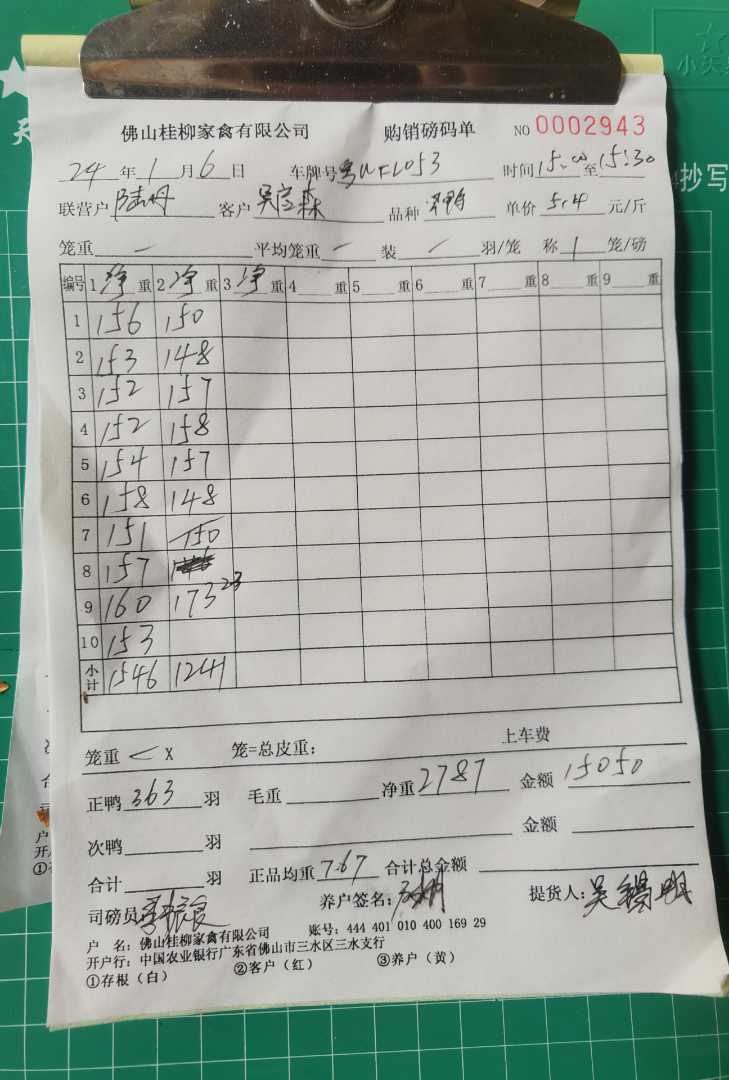 佛山桂柳家禽有限公司 购销磅码单 NO 0002943
24 年 1 月 6 日 车牌号 时间 15:00 至 15:30
联营户 客户 品种 单价 5.4 元/斤
笼重 — 平均笼重 — 装 / 羽/笼 称 1 笼/磅
编号 1 净 重 2 净 重 3 净 重 4 重 5 重 6 重 7 重 8 重 9 重
1 156 150
2 153 148
3 152 157
4 152 158
5 154 157
6 158 148
7 151 150
8 157
9 160 173 23
10 153
小计 1546 1241
笼重 X 笼=总皮重: 上车费
正鸭 363 羽 毛重 净重 2787 金额 15050
次鸭 羽 金额
合计 羽 正品均重 7.67 合计总金额
司磅员: 养户签名: 提货人:
户 名: 佛山桂柳家禽有限公司 账号: 444 401 010 400 169 29
开户行: 中国农业银行广东省佛山市三水区三水支行
①存根(白) ②客户(红) ③养户(黄)
抄写